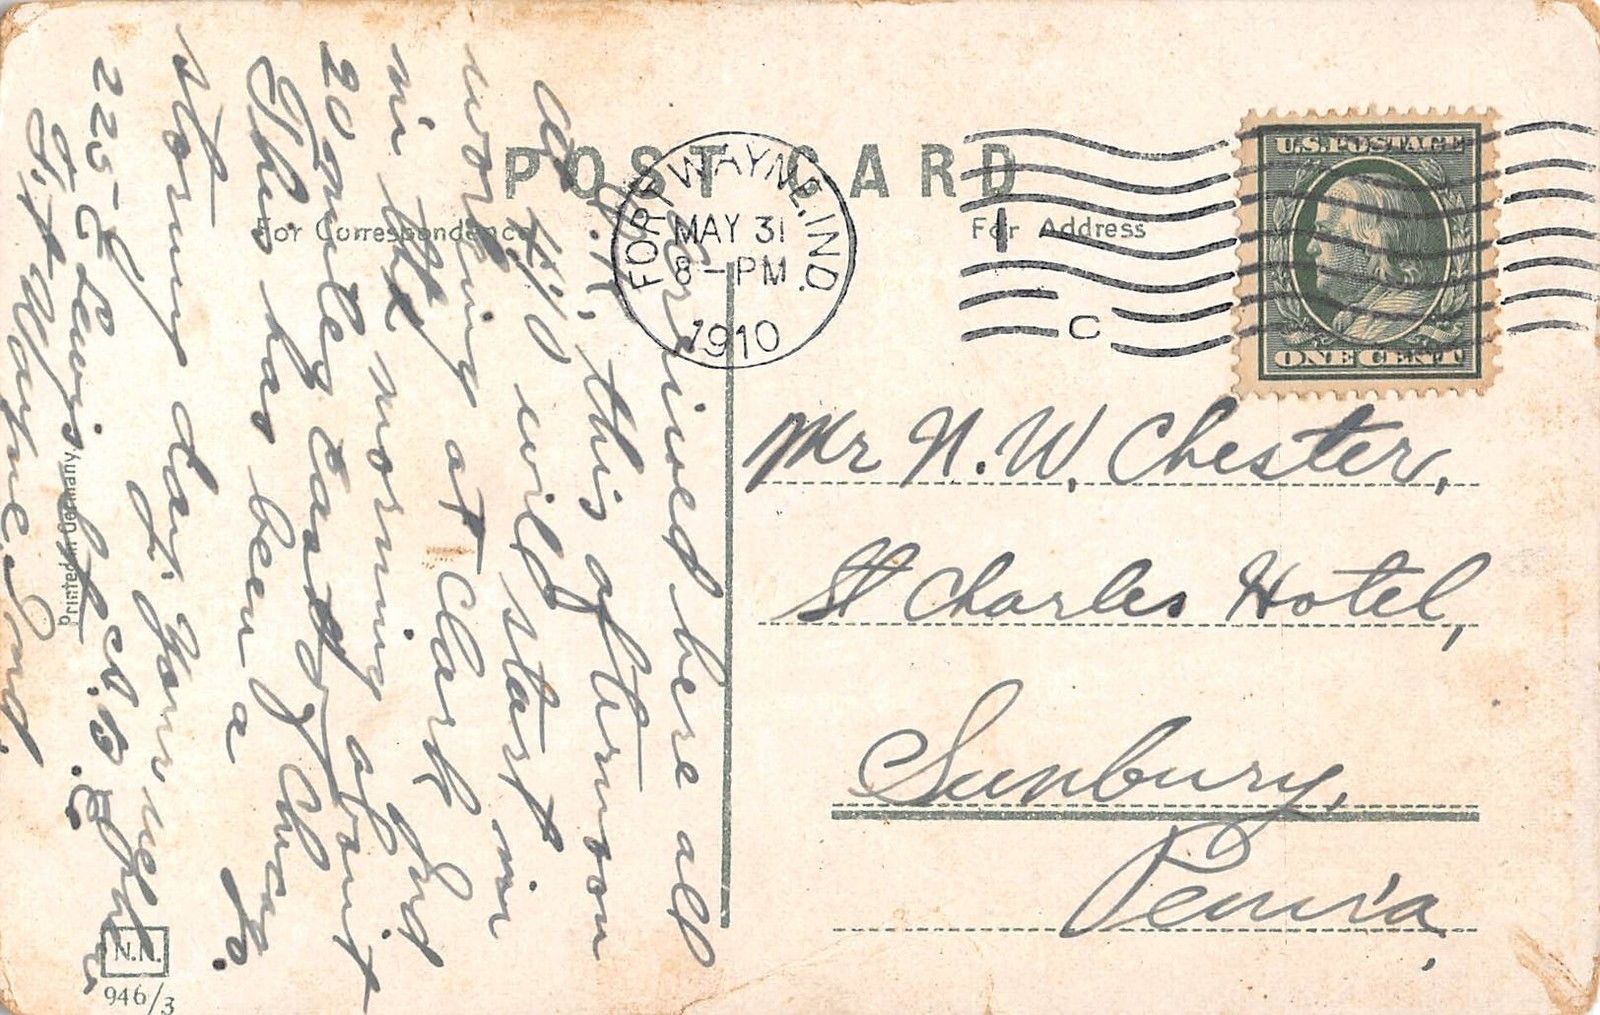 POST CARD
For Correspondence
For Address
FORT WAYNE, IND.
MAY 31
8-PM
1910
C
U.S. POSTAGE
ONE CENT
Mr N. W. Chester,
St Charles Hotel,
Sunbury,
Penn'a.
Arrived here all
O.K. this afternoon
at 4:10 will start in
working at Clark
in the morning
20 miles east of Chicago.
This has been a
stormy day.
225 E Lewis
Ft Wayne Ind.
Printed in Germany.
N.N.
946/3